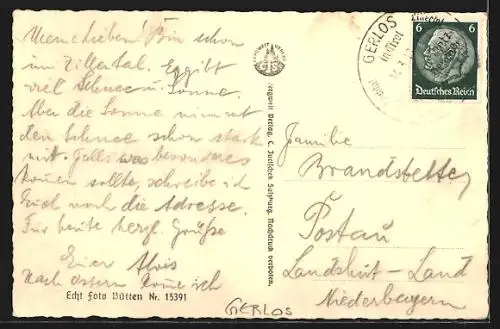 Meine Lieben! Bin schon
im Zillertal. Es gibt
viel Schnee u. Sonne.
Aber die Sonne nimmt
den Schnee schon stark
mit. Falls was besonderes
kommen sollte, schreibe ich
Euch noch die Adresse.
Für heute herzl. Grüße
Euer Alois
Nach Ostern komme ich
Echt Foto Bütten Nr. 15391
GERLOS
Bergwelt Verlag, C. Jurischek, Salzburg. Nachdruck verboten.
CJS
GERLOS
6 6
Deutsches Reich
Familie
Brandstetter
Postau
Landshut - Land
Niederbayern